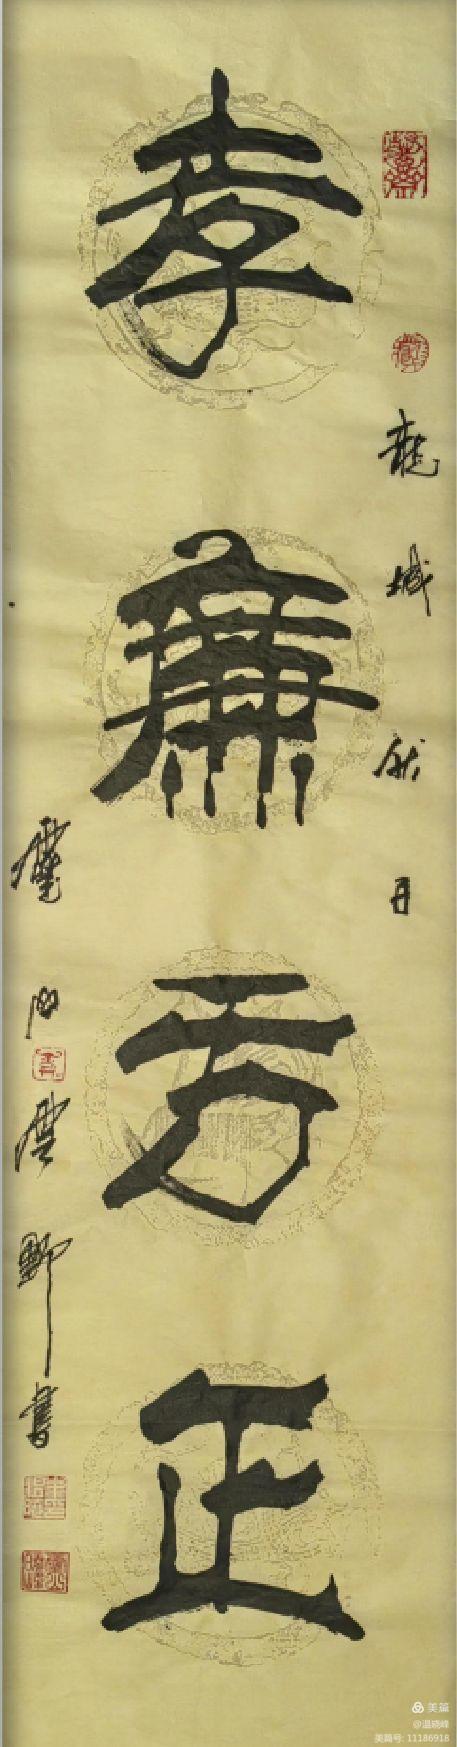 孝廉方正
龍城秋月
雲野書
美篇
@温晓峰
美篇号: 11186918